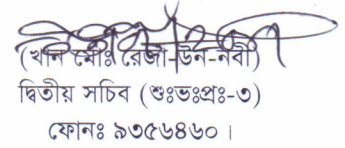 (খান মোঃ রেজা-উন-নবী)
দ্বিতীয় সচিব (শুঃভঃপ্রঃ-৩)
ফোনঃ ৯৩৫৬৪৬০।